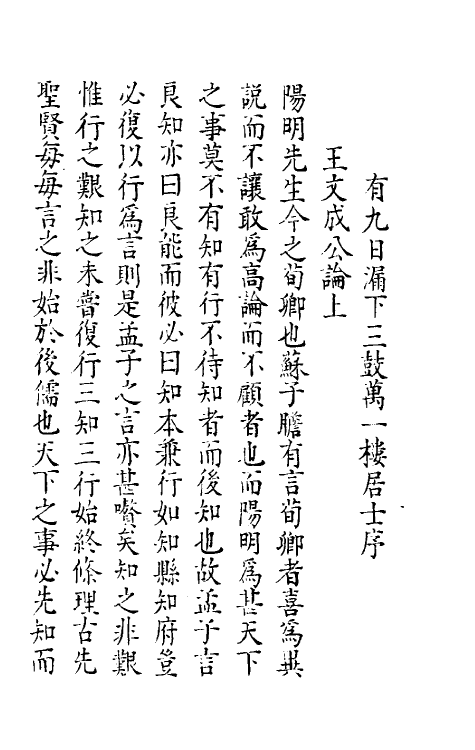 有九日漏下三鼓萬一樓居士序
王文成公論上
陽明先生今之荀卿也蘇子瞻有言荀卿者喜為異
說而不讓敢為高論而不顧者也而陽明為甚天下
之事莫不有知有行不待知者而後知也故孟子言
良知亦曰良能而彼必曰知本兼行如知縣知府豈
必復以行為言則是孟子之言亦甚贅矣知之非艱
惟行之艱知之未嘗復行三知三行始終條理古先
聖賢每每言之非始於後儒也天下之事必先知而